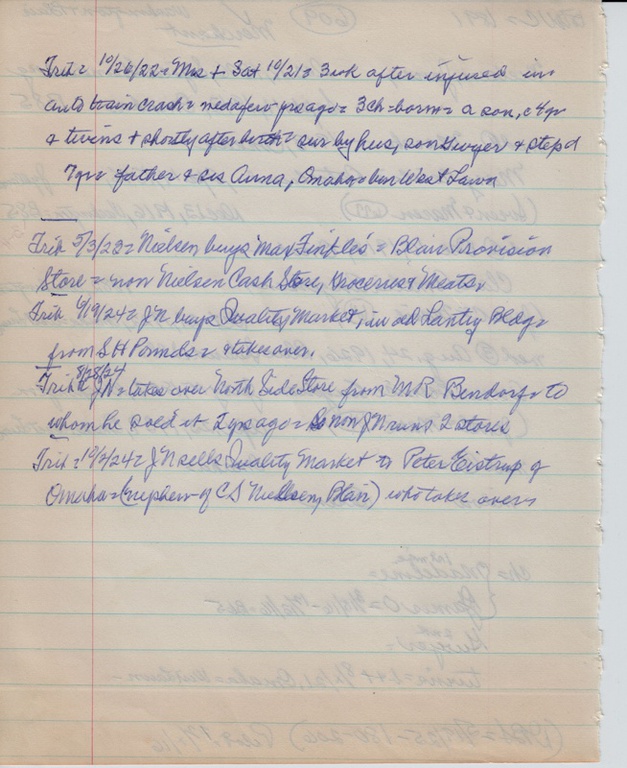 Trib = 10/26/22 = Mrs + Sat 10/21 = 3 wk after injured in
auto train crash = med a few yrs ago = 3 ch = born = a son, c 4 yr
& twins + shortly after birth = sur by hus, son Gwyer & step d
7 yr = father & sis Anna, Omaha = bur West Lawn
Trib 5/3/23 = Nielsen buys Max Finkle's = Blair Provision
Store = now Nielsen Cash Store, Groceries & Meats.
Trib 6/19/24 = JN buys Quality Market, in old Lantry Bldg =
from S H Pounds = & takes over.
Trib 8/28/24 JN = takes over North Side Store from MR Bendorf = to
whom he sold it 2 yrs ago = So now JN runs 2 stores
Trib = 10/2/24 = JN sells Quality Market to Peter Eistrup of
Omaha = (nephew of CS Nielsen, Blair) who takes over =